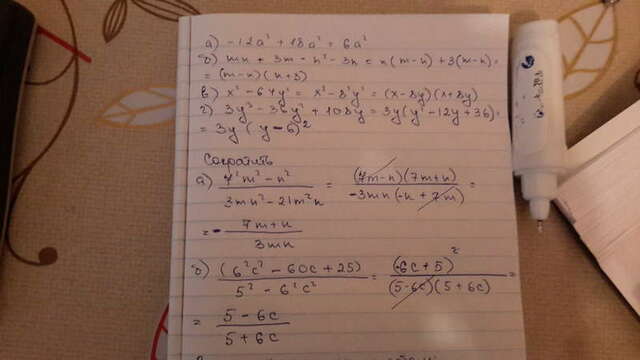 а) -12a² + 18a² = 6a²
б) mn + 3m - n² - 3n = n(m-n) + 3(m-n) =
= (m-n)(n+3)
в) x² - 64y² = x² - 8²y² = (x-8y)(x+8y)
г) 3y³ - 36y² + 108y = 3y(y² - 12y + 36) =
= 3y (y-6)²
Сократить
а) 7²m² - n² / 3mn² - 21m²n = (7m-n)(7m+n) / -3mn(-n+7m) =
= - 7m+n / 3mn
б) (6²c² - 60c + 25) / 5² - 6²c² = (-6c+5)² / (5-6c)(5+6c) =
= 5-6c / 5+6c